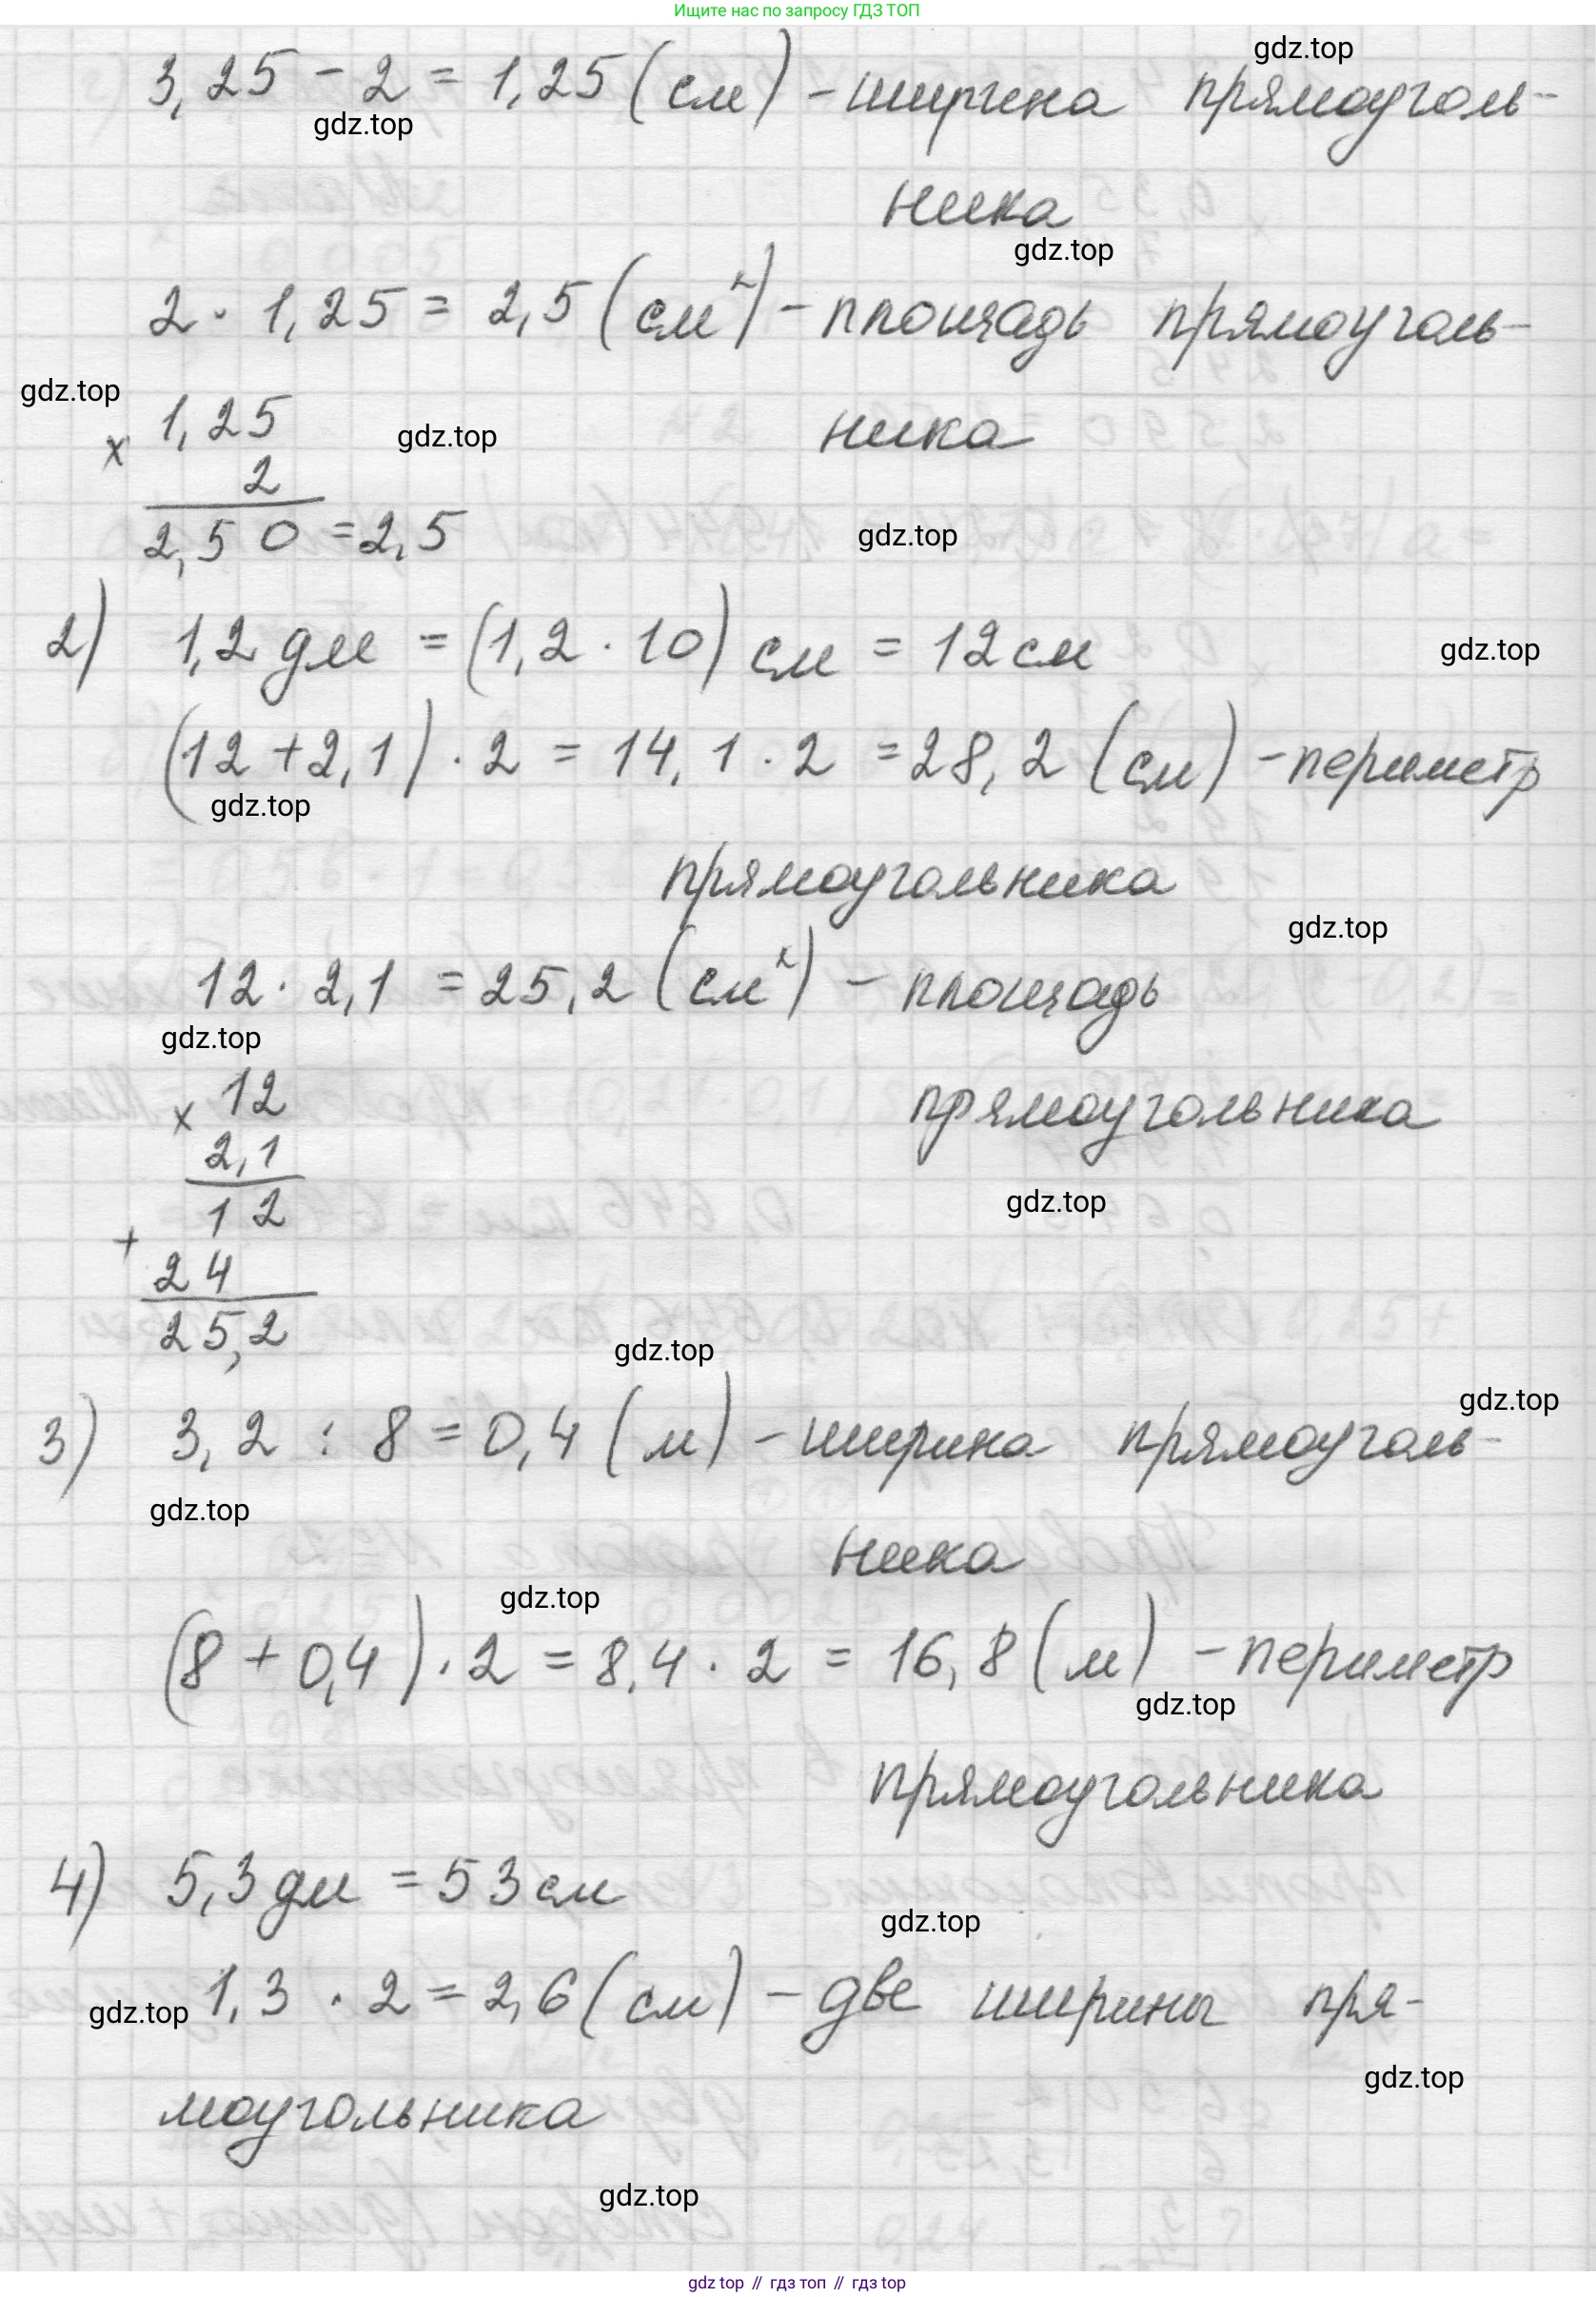 Ищите нас по запросу ГДЗ ТОП
gdz.top
3,25 - 2 = 1,25 (см) - ширина прямоуголь-
gdz.top
ника
gdz.top
2 · 1,25 = 2,5 (см²) - площадь прямоуголь-
gdz.top
ника
× 1,25
gdz.top
2
2,50 = 2,5
gdz.top
2) 1,2 дм = (1,2 · 10) см = 12 см
gdz.top
(12 + 2,1) · 2 = 14,1 · 2 = 28,2 (см) - периметр
gdz.top
прямоугольника
gdz.top
12 · 2,1 = 25,2 (см²) - площадь
gdz.top
прямоугольника
× 12
2,1
gdz.top
12
+
24
25,2
gdz.top
gdz.top
3) 3,2 : 8 = 0,4 (м) - ширина прямоуголь-
gdz.top
ника
gdz.top
(8 + 0,4) · 2 = 8,4 · 2 = 16,8 (м) - периметр
gdz.top
прямоугольника
4) 5,3 дм = 53 см
gdz.top
1,3 · 2 = 2,6 (см) - две ширины пря-
gdz.top
gdz.top
моугольника
gdz.top
gdz top // гдз топ // гдз top